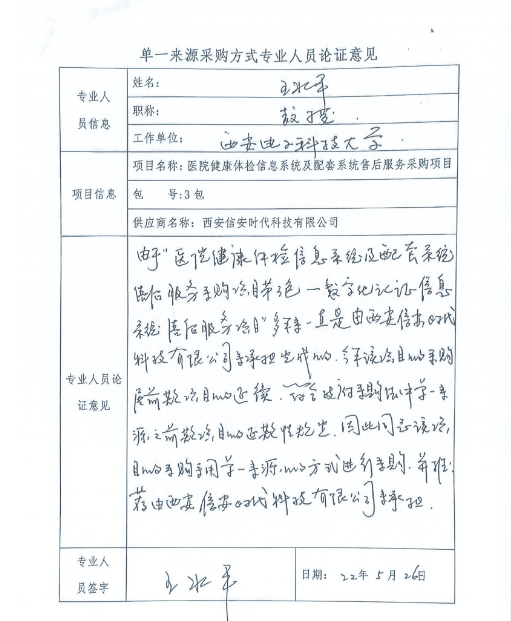 单一来源采购方式专业人员论证意见
专业人员信息
姓名:
职称: 教授
工作单位: 西安电子科技大学
项目信息
项目名称: 医院健康体检信息系统及配套系统售后服务采购项目
包 号:3包
供应商名称: 西安信安时代科技有限公司
专业人员论证意见
由于“医院健康体检信息系统及配套系统
售后服务采购项目第3包—数字化认证信息
系统售后服务项目”多年一直是由西安信安时代
科技有限公司来承担完成的。今年该项目的采购
是前期项目的延续。符合政府采购法中单一来
源之前期项目的延续性规定。因此同意该项
目的采购采用单一来源的方式进行采购。并推
荐由西安信安时代科技有限公司来承担.
专业人员签字
日期: 22年 5月 26日